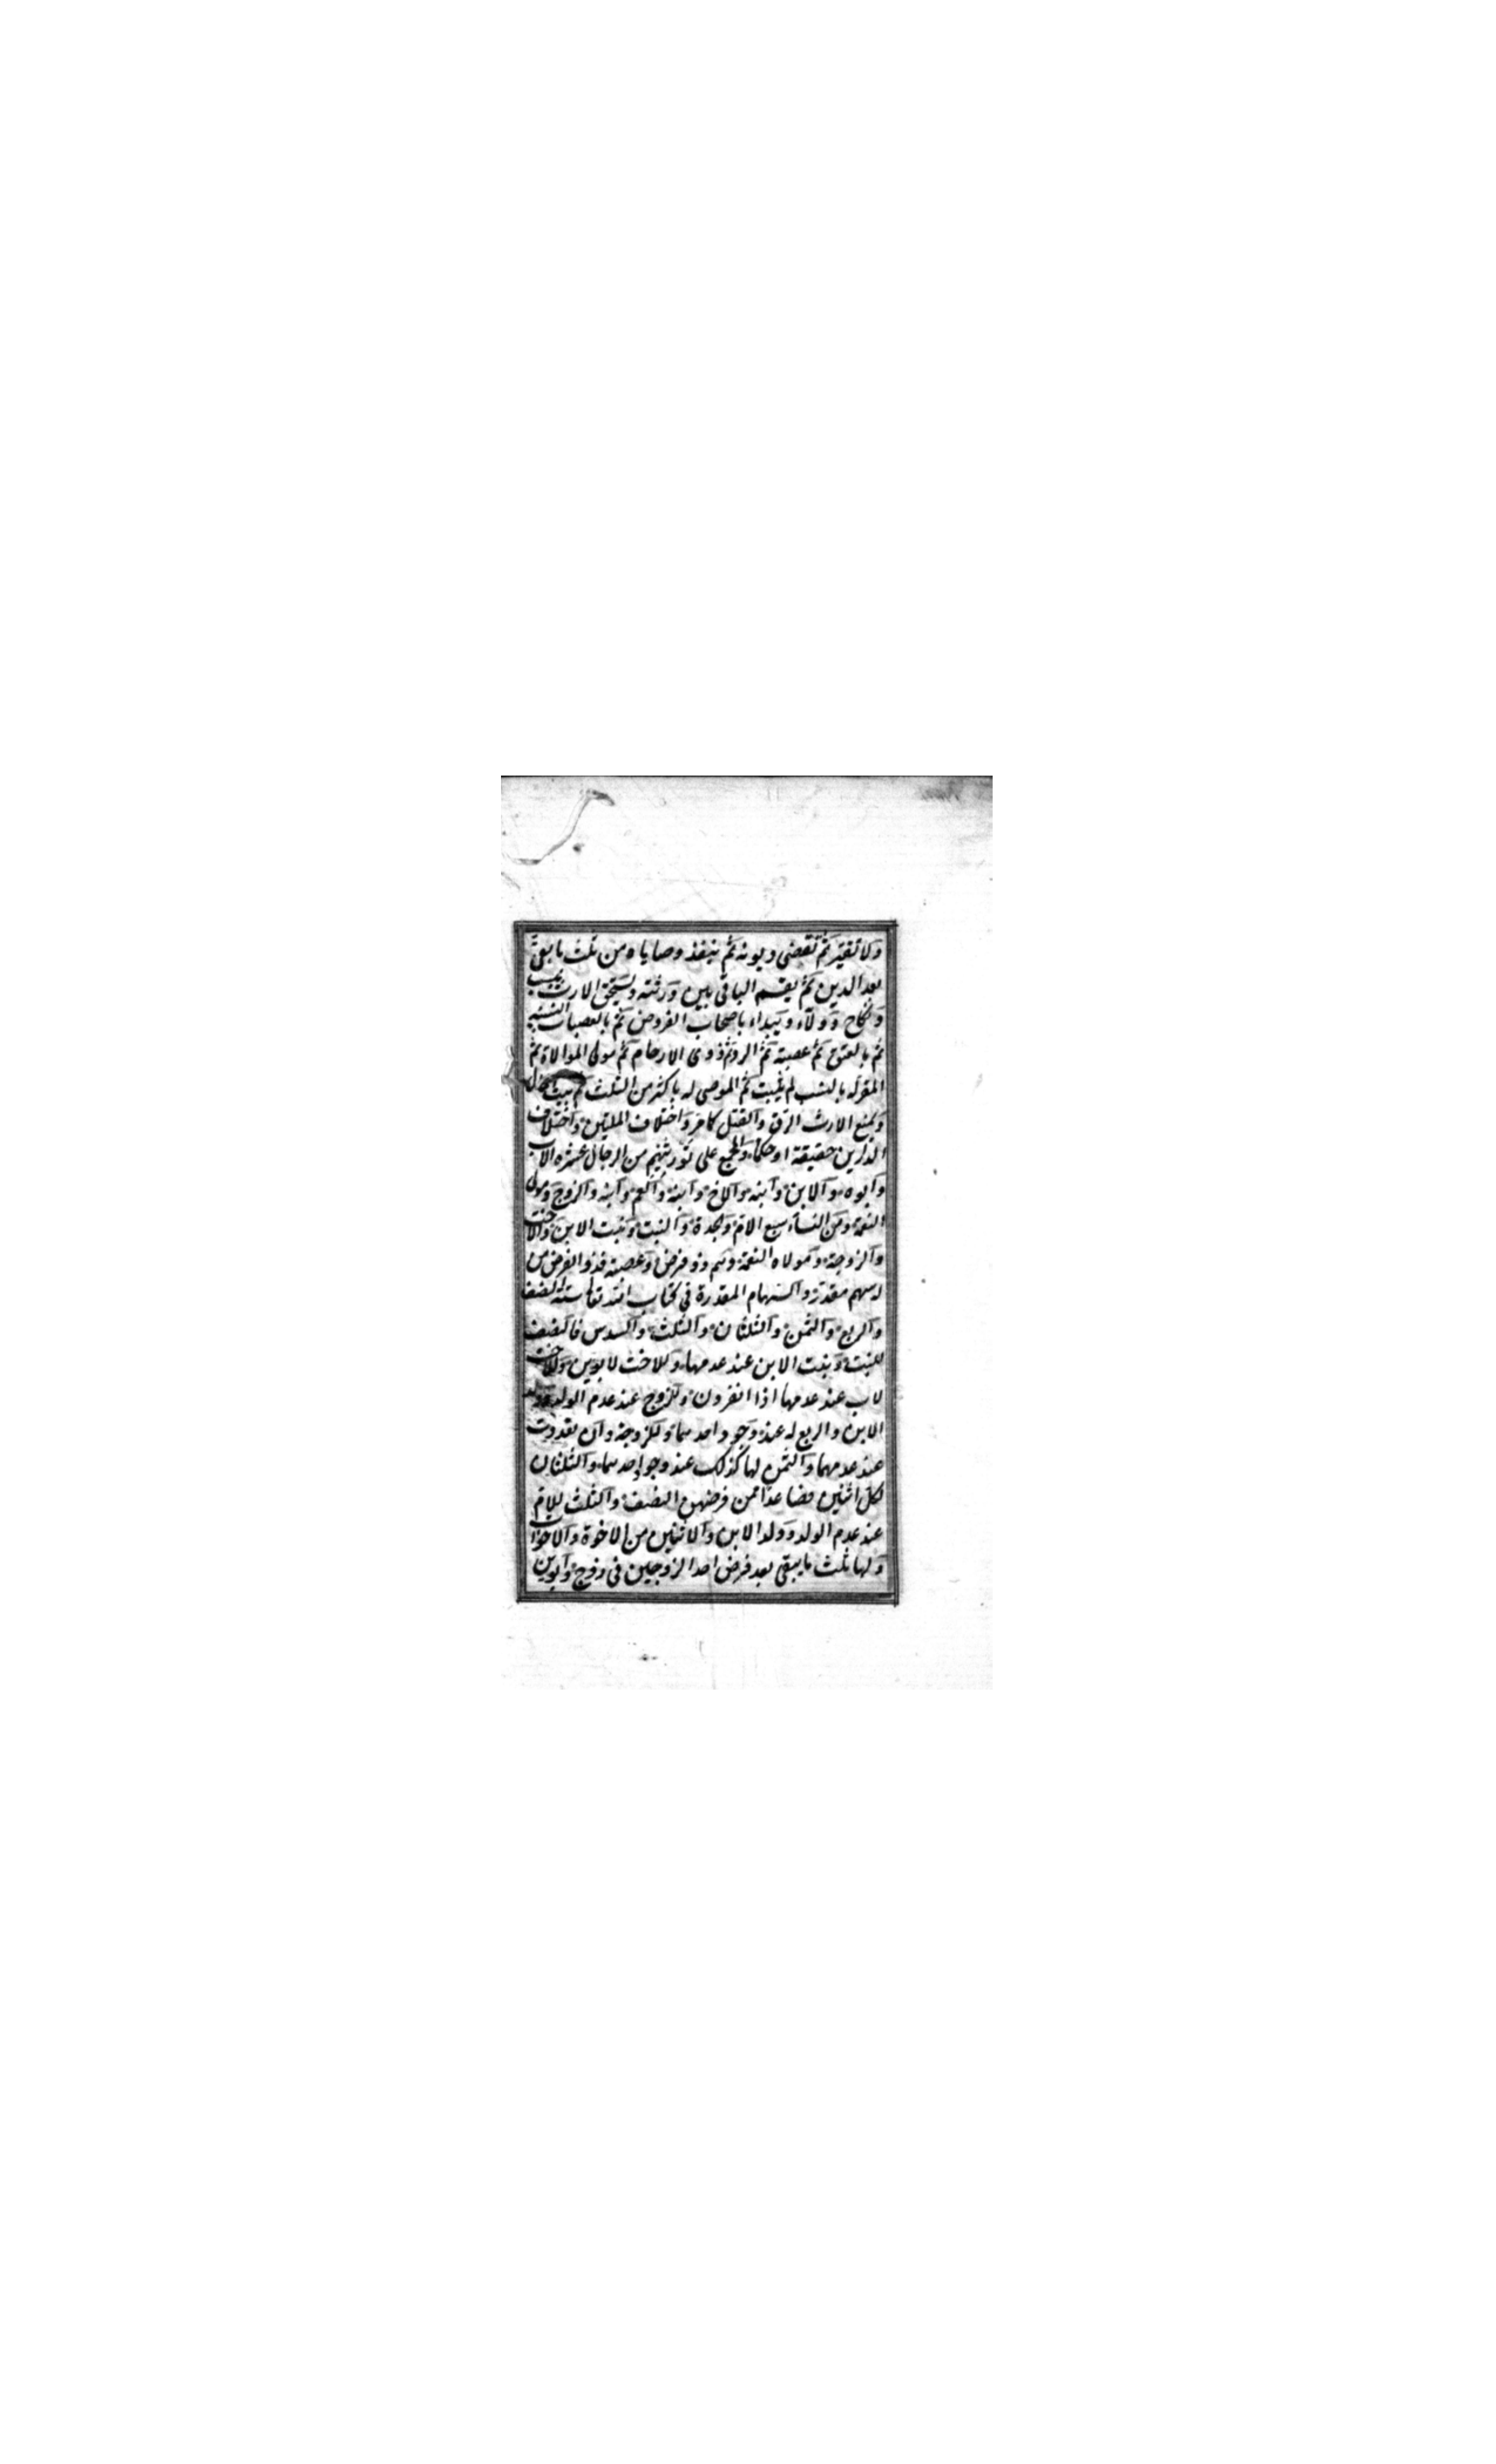 ولا تقتير ثم تقضى ديونه ثم ينفذ وصاياه من ثلث ما بقى
بعد الدين ثم يقسم الباقى بين ورثته ويستحق الارث بنسب
ونكاح وولاء ويبداء باصحاب الفروض ثم بالعصبات النسبية
ثم بالمعتق ثم عصبته ثم الرد ثم ذوى الارحام ثم مولى الموالاة ثم
المقر له بالنسب لم يثبت ثم الموصى له باكثر من الثلث ثم بيت المال
ويمنع الارث الرق والقتل كامر واختلاف الملتين واختلاف
الدارين حقيقة او حكما والجمع على توريثهم من الرجال عشره الاب
وابوه والابن وابنه والاخ وابنه والعم وابنه والزوج ومولى
النعمة ومن النساء سبع الام والجدة والبنت وبنت الابن والاخت
والزوجة ومولاه النعمة وهم ذو فرض وعصبة فذو الفرض من
له سهم مقدر والسهام المقدرة فى كتاب الله تعا ستة النصف
والربع والثمن والثلثان والثلث والسدس فالنصف
للبنت وبنت الابن عند عدمها وللاخت لابوين وللاخت
لاب عند عدمها اذا انفردن وللزوج عند عدم الولد وولد
الابن والربع له عند وجود احدهما وللزوجة وان تعددت
عند عدمهما والثمن لها كذلك عند وجود احدهما والثلثان
لكل اثنين فصاعدا ممن فرضهن النصف والثلث للام
عند عدم الولد وولد الابن والاثنين من الاخوة والاخوات
ولها ثلث ما يبقى بعد فرض احد الزوجين فى زوج وابوين